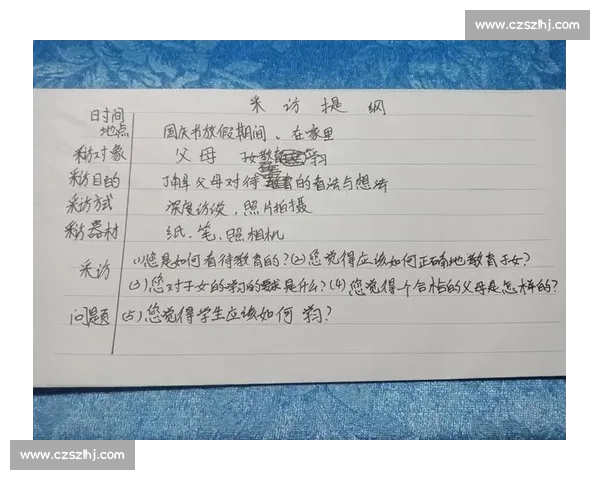 www.czszlhj.com
采访提纲
日时间
地点 国庆节放假期间、在家里
采访对象 父母
采访目的 了解父母对待教育的看法与想法
采访方式 深度访谈,照片拍摄
采访器材 纸、笔、照相机
采访 (1)您是如何看待教育的?(2)您觉得应该如何正确地教育子女?
(3)您对子女的学习的要求是什么?(4)您觉得个合格的父母是怎样的?
问题 (5)您觉得学生应该如何学习?
www.czszlhj.com